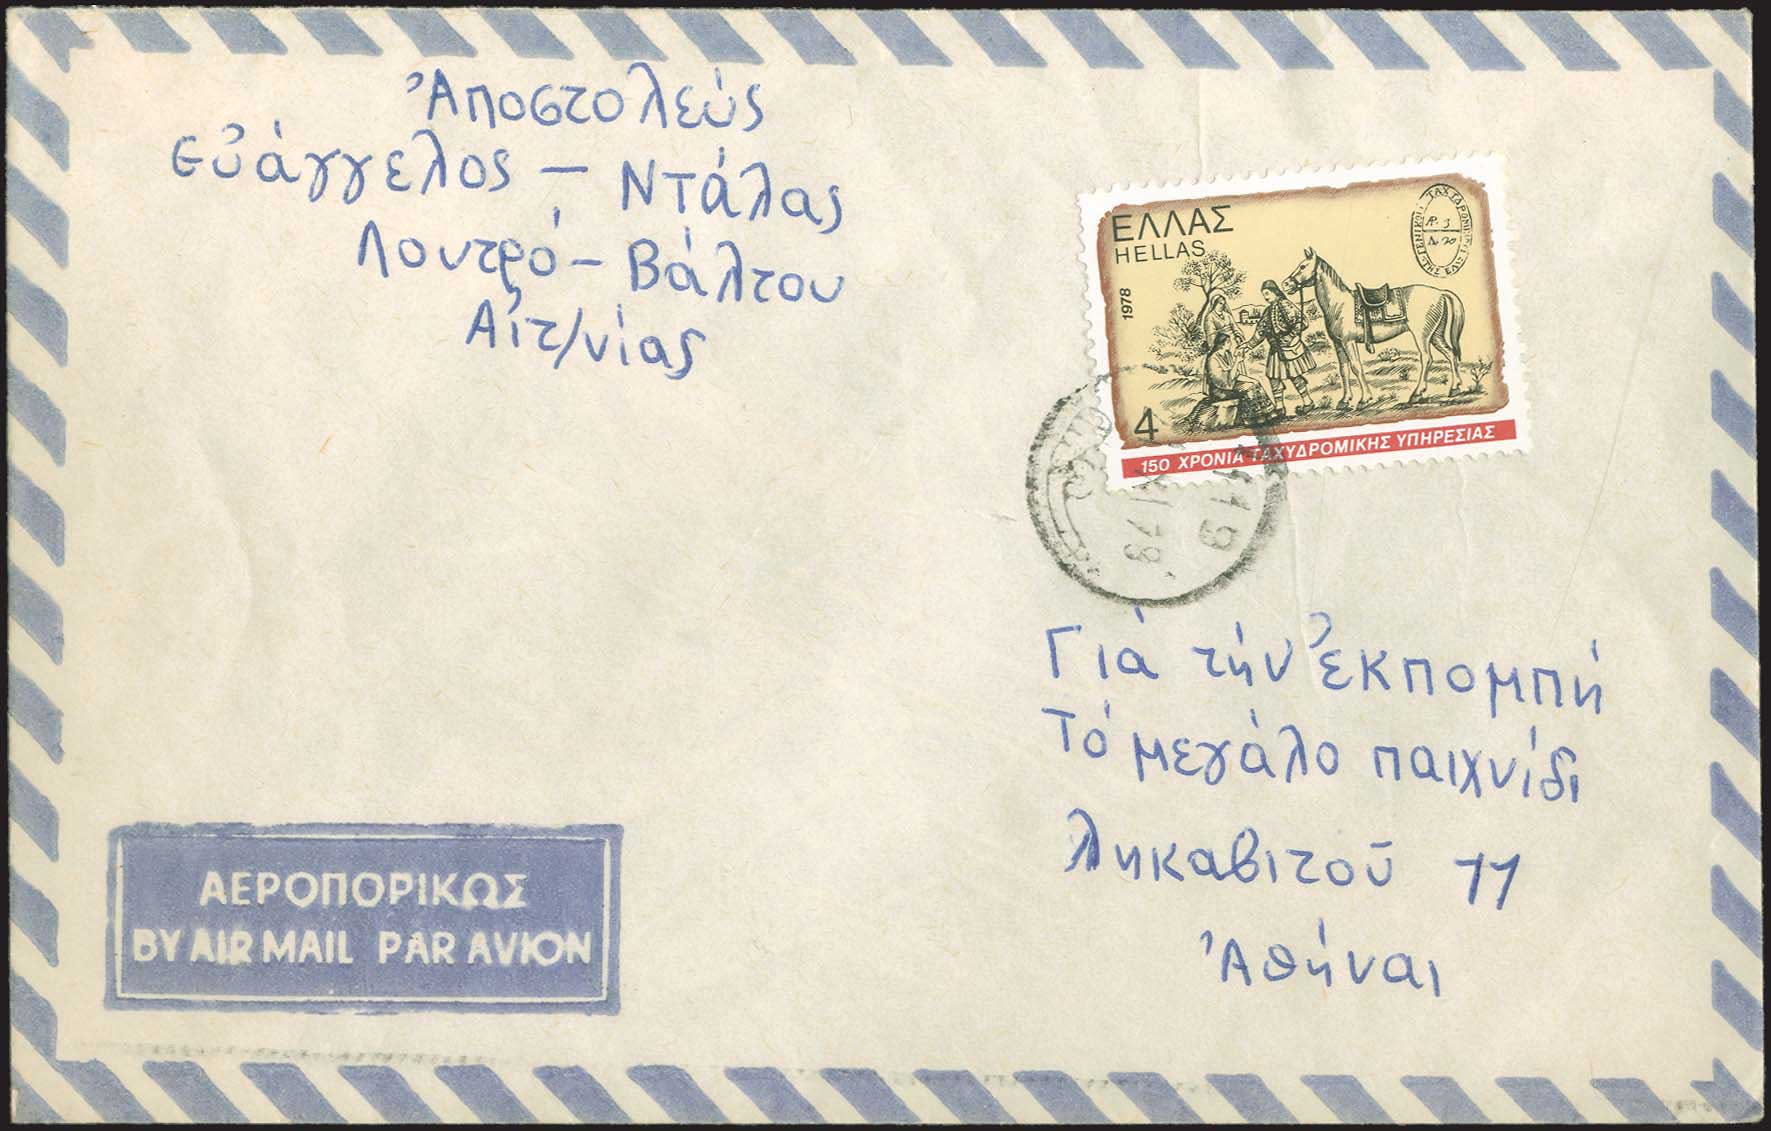 Ἀποστολεύς
Εὐάγγελος – Ντάλας
Λουτρό – Βάλτου
Αἰτ/νίας
ΕΛΛΑΣ
HELLAS
1978
4
150 ΧΡΟΝΙΑ ΤΑΧΥΔΡΟΜΙΚΗΣ ΥΠΗΡΕΣΙΑΣ
Γιά τήν ἐκπομπή
Τό μεγάλο παιχνίδι
Ληκαβιτοῦ 11
Ἀθήναι
ΑΕΡΟΠΟΡΙΚΩΣ
BY AIR MAIL PAR AVION